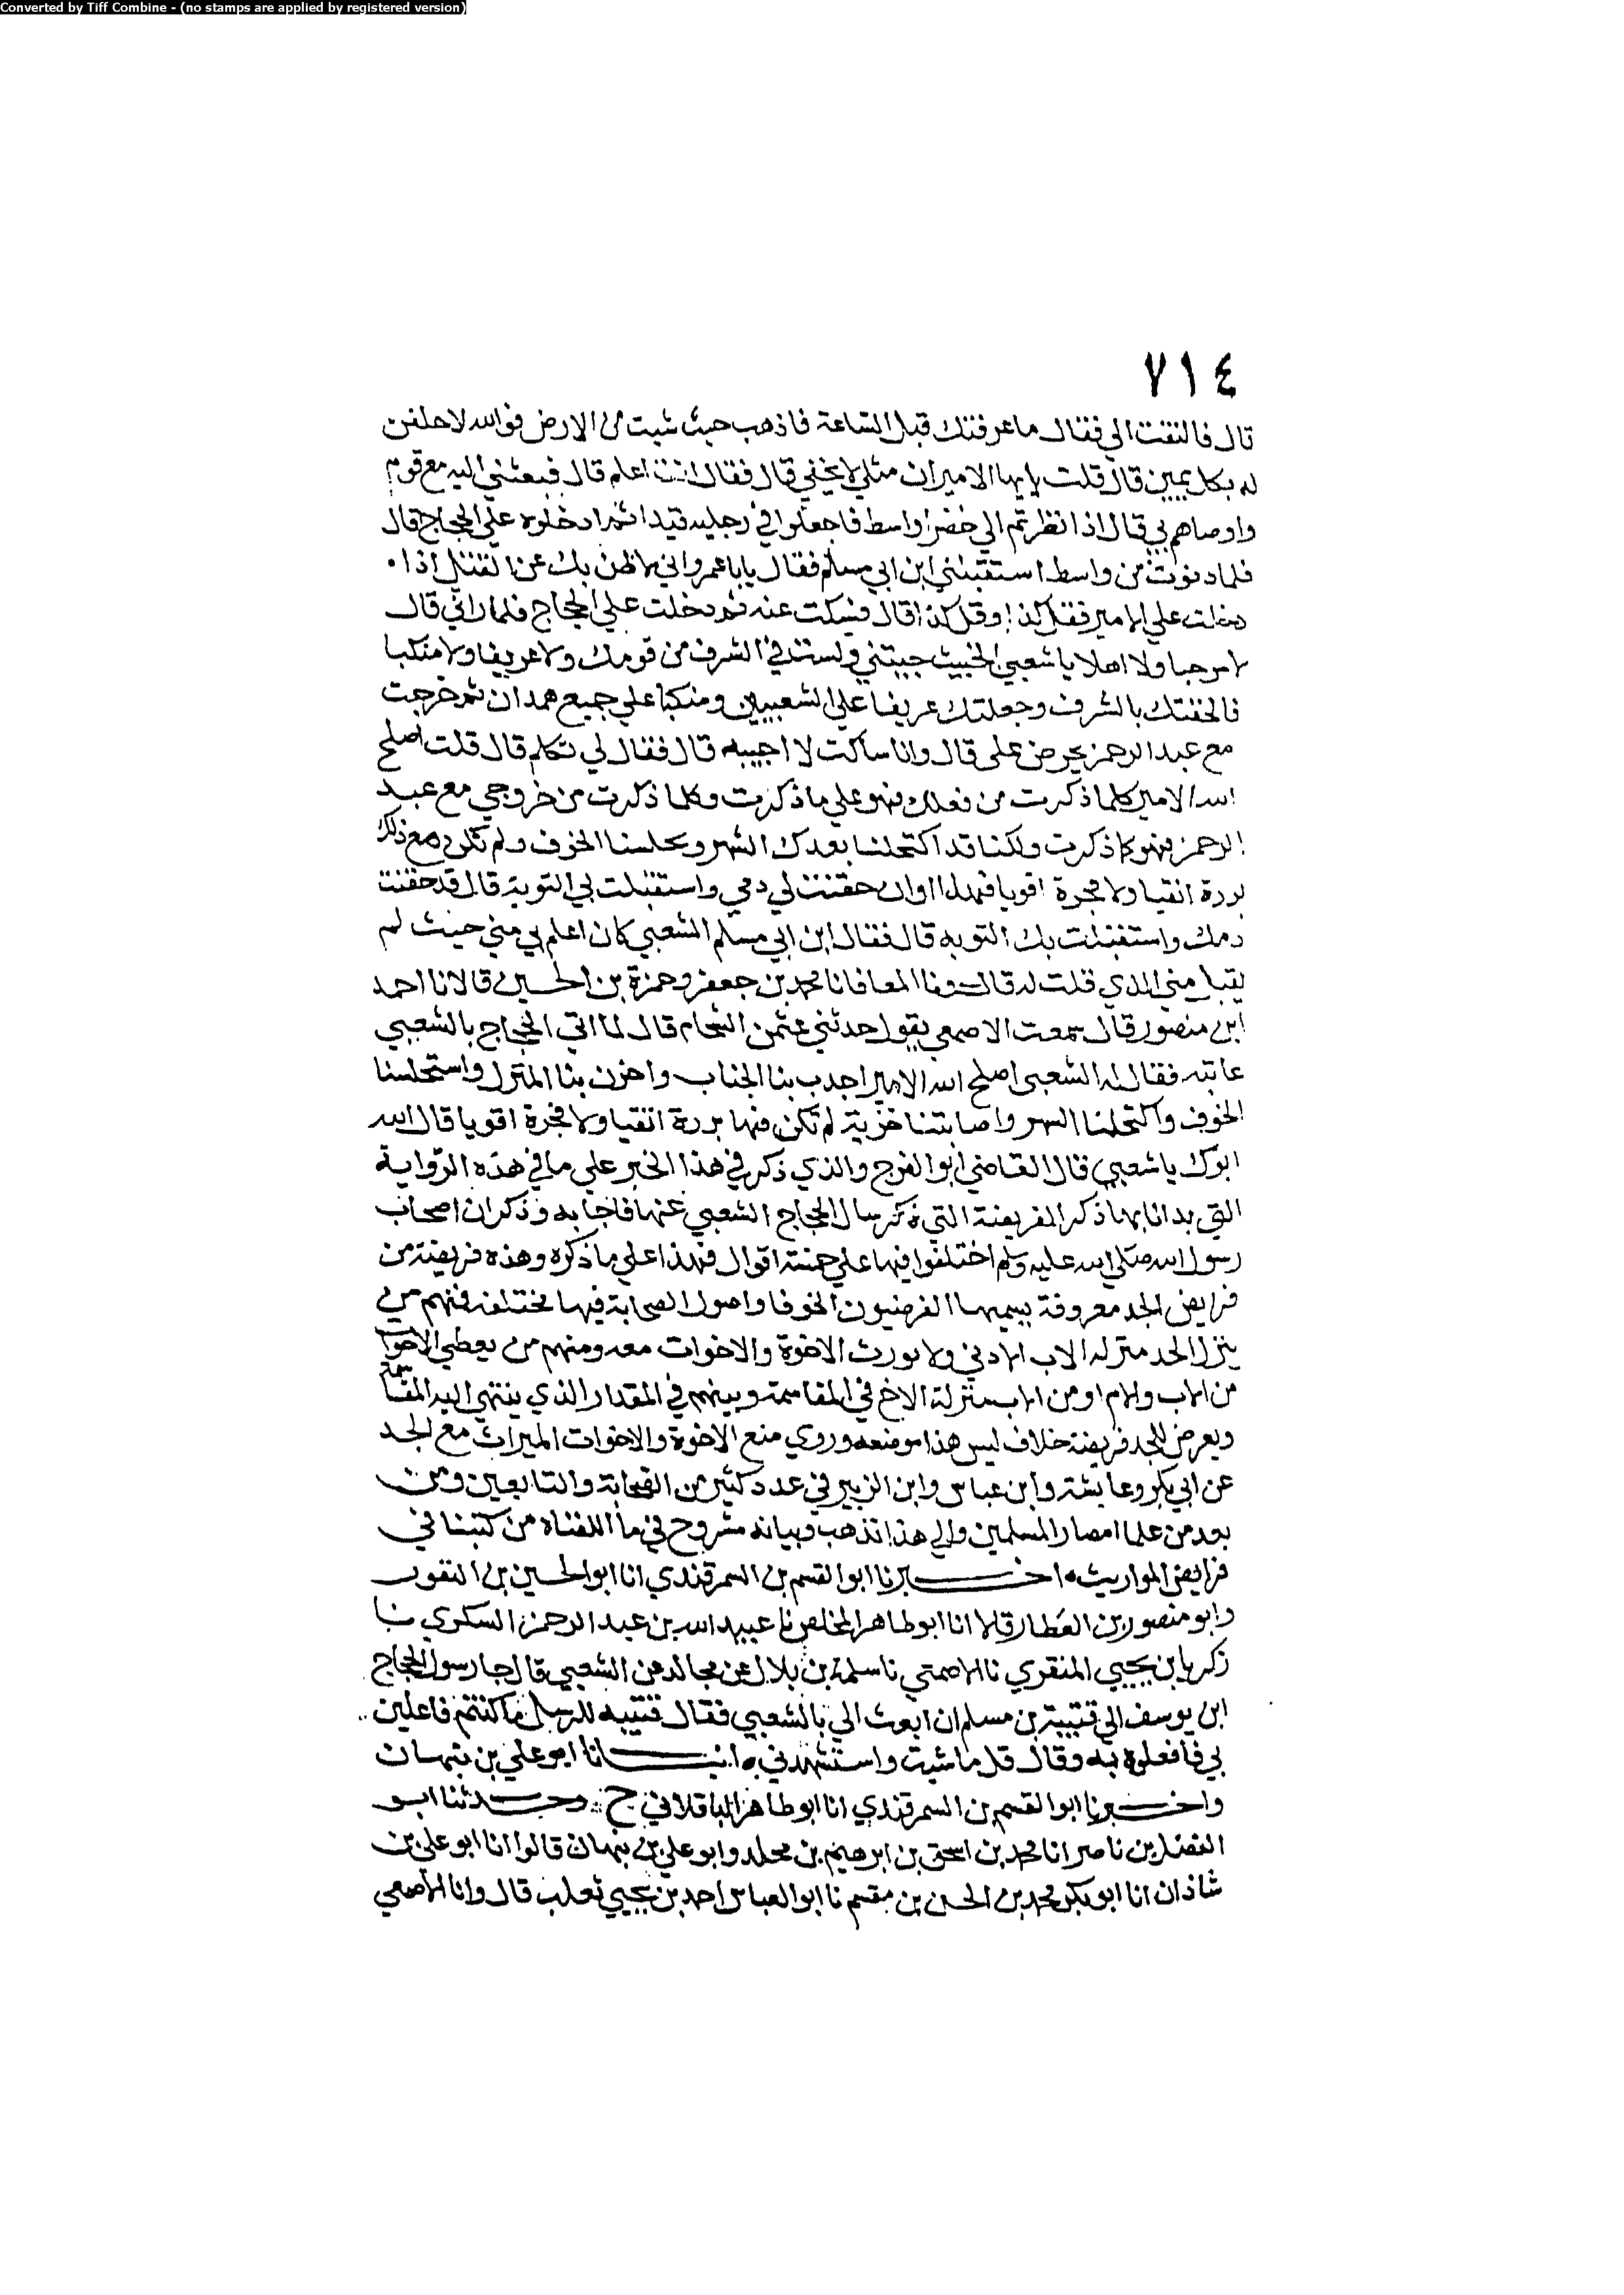 Converted by Tiff Combine - (no stamps are applied by registered version)
٧١٤
قال فالتفت الي فقال ما عرفتك قبل الساعة فاذهب حيث شيت من الارض فوالله لاحلفن
له بكل يمين قال قلت يايها الامير ان مثلي لا يخفي قال فقال انت اعلم قال فبعثني اليه مع قوم
واوصاهم بي قال اذا نظرتم الي خضرا واسط فاجعلوا في رجليه قيدا ثم ادخلوه علي الحجاج قال
فلما دنوت من واسط استقبلني ابن ابي مسلم فقال يابا عمرو اني لاظن بك عن القتل اذا
دخلت علي الامير فقل كذا وقل كذا قال فسكت عنه ثم دخلت علي الحجاج فلما راني قال
لا مرحبا ولا اهلا يا شعبي الخبيث جيتني ولست في الشرف من قومك ولا عريفا ولا منكبا
فالحقتك بالشرف وجعلتك عريفا علي الشعبيين ومنكبا علي جميع همدان ثم خرجت
مع عبد الرحمن يحرض علي قال وانا ساكت لا اجيبه قال فقال لي تكلم قال قلت اصلح
الله الامير كلما ذكرت من فعلك فهو علي ما ذكرت وكلما ذكرت من خروجي مع عبد
الرحمن فهو كما ذكرت ولكنا قد اكتحلنا بعدك السهر وتحلسنا الخوف ولم نكن مع ذلك
بررة اتقيا ولا فجرة اقويا فهذا اوان حقنت لي دمي واستقبلت بي التوبة قال قد حقنت
دمك واستقبلت بك التوبه قال فقال ابن ابي مسلم الشعبي كان اعلم بي مني حيث لم
يقبل مني الذي قلت له قال ونا المعافا نا محمد بن جعفر وحمزة بن الحسين قالا نا احمد
ابن منصور قال سمعت الاصمعي يقول حدثني عثمن الشحام قال لما اتي الحجاج بالشعبي
عاتبه فقال له الشعبي اصلح الله الامير اجدب بنا الجناب واحزن بنا المنزل واستحلسنا
الخوف واكتحلنا السهر واصابتنا خزية لم نكن فيها بررة اتقيا ولا فجرة اقويا قال لله
ابوك يا شعبي قال القاضي ابو الفرج والذي ذكر في هذا الخبر علي ما في هذه الرواية
التي بدانا بها ذكر الفريضة التي ذكر سال الحجاج الشعبي عنها فاجابه وذكر ان اصحاب
رسول الله صلى الله عليه وسلم اختلفوا فيها علي خمسة اقوال فهذا علي ما ذكره وهذه فريضة من
فرايض الجد معروفة يسميها الفرضيون الخرقا واصول الصحابة فيها مختلفه فمنهم من
ينزل الجد منزله الاب الادني ولا يورث الاخوة والاخوات معه ومنهم من يعطي الاخوات
من الاب والام او من الاب بمنزلة الاخ في المقاسمة وبينهم في المقدار الذي ينتهي اليه المقاسمة
ويعرض للجد فريضة خلاف ليس هذا موضعه وروي منع الاخوة والاخوات الميراث مع الجد
عن ابي بكر وعايشة وابن عباس وابن الزبير في عدد كثير من الصحابة والتابعين ومن
بعد من علما امصار المسلمين والي هذا نذهب وبيانه مشروح في ما الفناه من كتبنا في
فرايض المواريث اخبرنا ابو القسم بن السمرقندي انا ابو الحسين بن النقور
وابو منصور بن العطار قالا انا ابو طاهر المخلص نا عبيد الله بن عبد الرحمن السكري نا
زكريا بن يحيي المنقري نا الاصمعي نا سلمة بن بلال عن مجالد عن الشعبي قال جا رسول الحجاج
ابن يوسف الي قتيبة بن مسلم ان ابعث الي بالشعبي فقال قتيبه للرسل ما كنتم فاعلين
بي فافعلوه به وقال قل ما شيت واستشهدني انبانا ابو علي بن نبهان
واخبرنا ابو القسم بن السمرقندي انا ابو طاهر الباقلاني ح وحدثنا ابو
الفضل بن ناصر انا محمد بن اسحق بن ابرهيم بن مخلد وابو علي بن نبهان قالوا انا ابو علي بن
شاذان انا ابو بكر محمد بن الحسن بن مقسم نا ابو العباس احمد بن يحيي ثعلب قال وانا الاصمعي